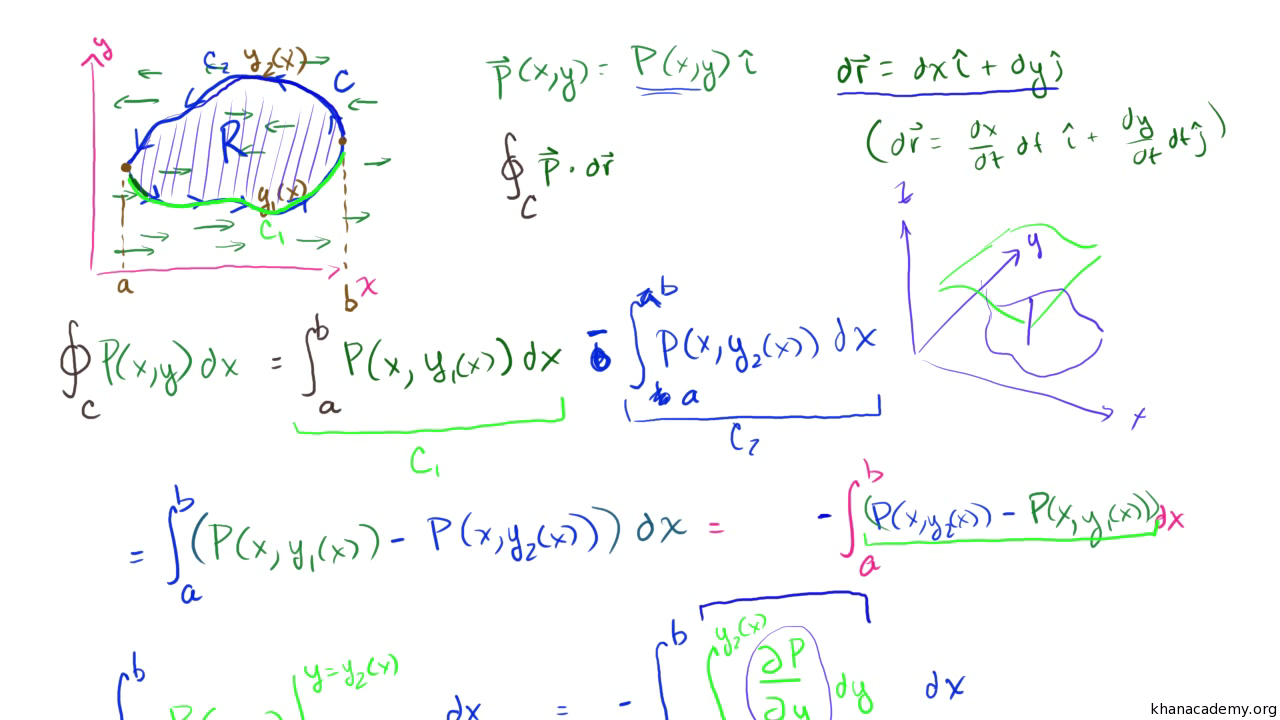 y
C₂ y₂(x)
C
R
y₁(x)
C₁
a b x
P⃗(x,y) = P(x,y) î
dr⃗ = dx î + dy ĵ
∮_C P⃗ · dr⃗
(dr⃗ = dx/dt dt î + dy/dt dt ĵ)
z
y
x
∮_C P(x,y) dx = ∫_a^b P(x, y₁(x)) dx - ∫_a^b P(x, y₂(x)) dx
C₁ C₂
= ∫_a^b (P(x, y₁(x)) - P(x, y₂(x))) dx = - ∫_a^b (P(x, y₂(x)) - P(x, y₁(x))) dx
b y = y₂(x) dx = - ∫^b ∫^{y₂(x)} ∂P/∂y dy dx
khanacademy.org